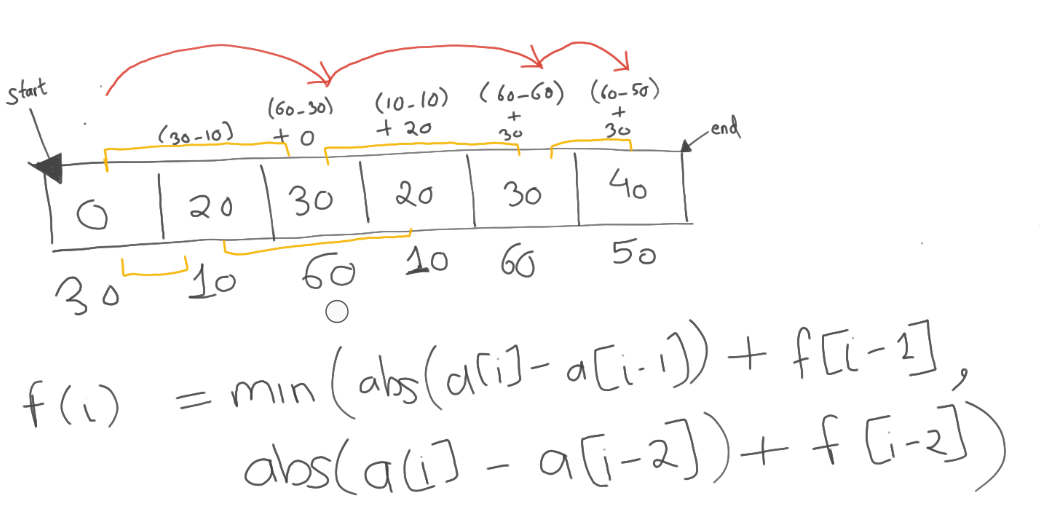 start
(30-10)
(60-30)
+ 0
(10-10)
+ 20
(60-60)
+
30
(60-50)
+
30
end
0 20 30 20 30 40
30 10 60 10 60 50
f(i) = min(abs(a[i]-a[i-1]) + f[i-1],
abs(a[i] - a[i-2]) + f[i-2])